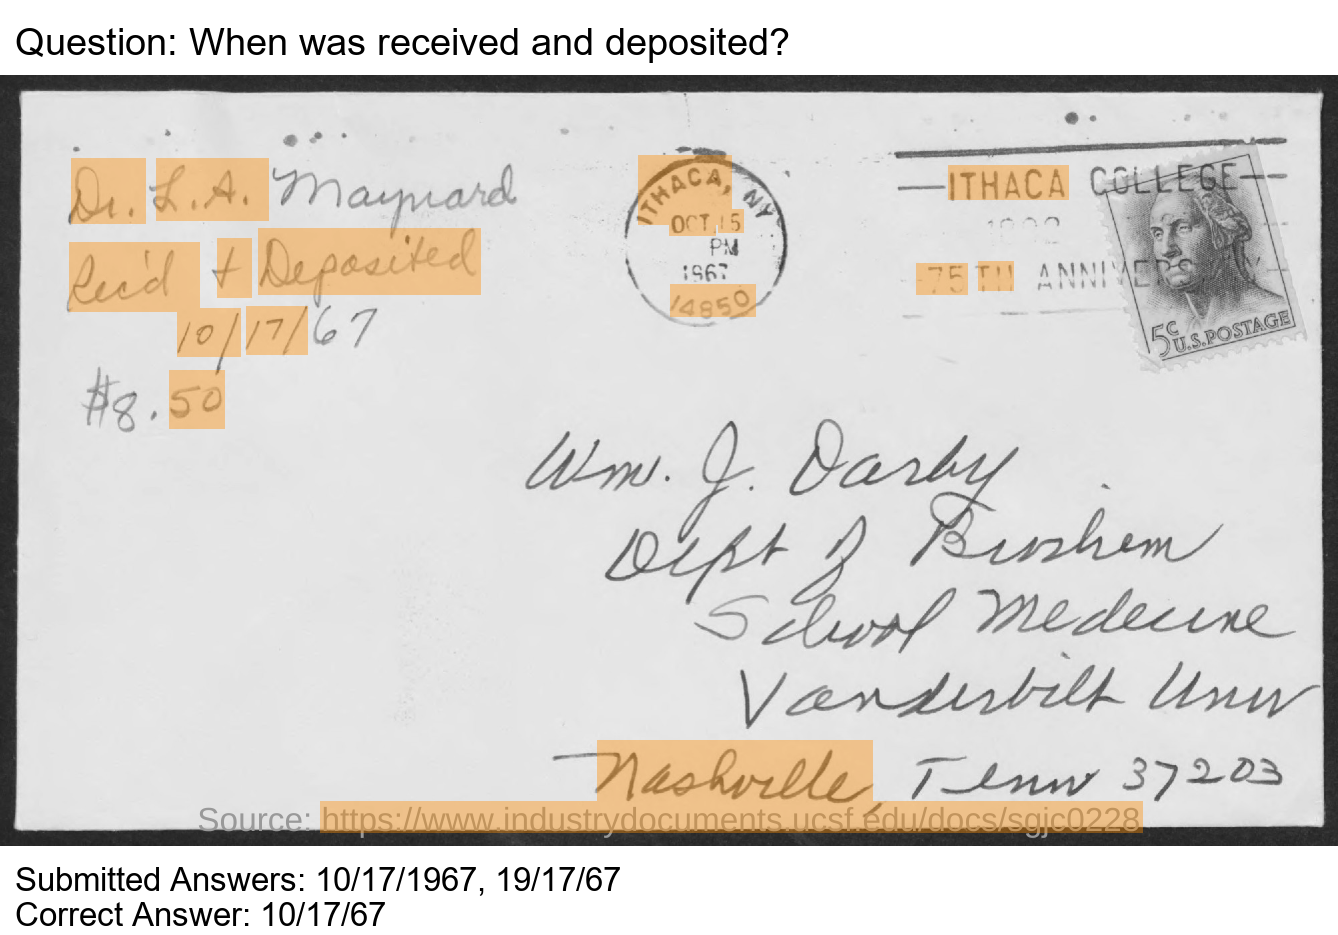 Question: When was received and deposited?
Dr. L.A. Maynard
Rec'd + Deposited
10/17/67
$8.50
ITHACA, NY
OCT 15
PM
1967
14850
ITHACA COLLEGE
75TH ANNIVER
5c
U.S.POSTAGE
Wm. J. Darby
Dept of Biochem
School Medecine
Vanderbilt Univ
Nashville, Tenn 37203
Source: https://www.industrydocuments.ucsf.edu/docs/sgjc0228
Submitted Answers: 10/17/1967, 19/17/67
Correct Answer: 10/17/67